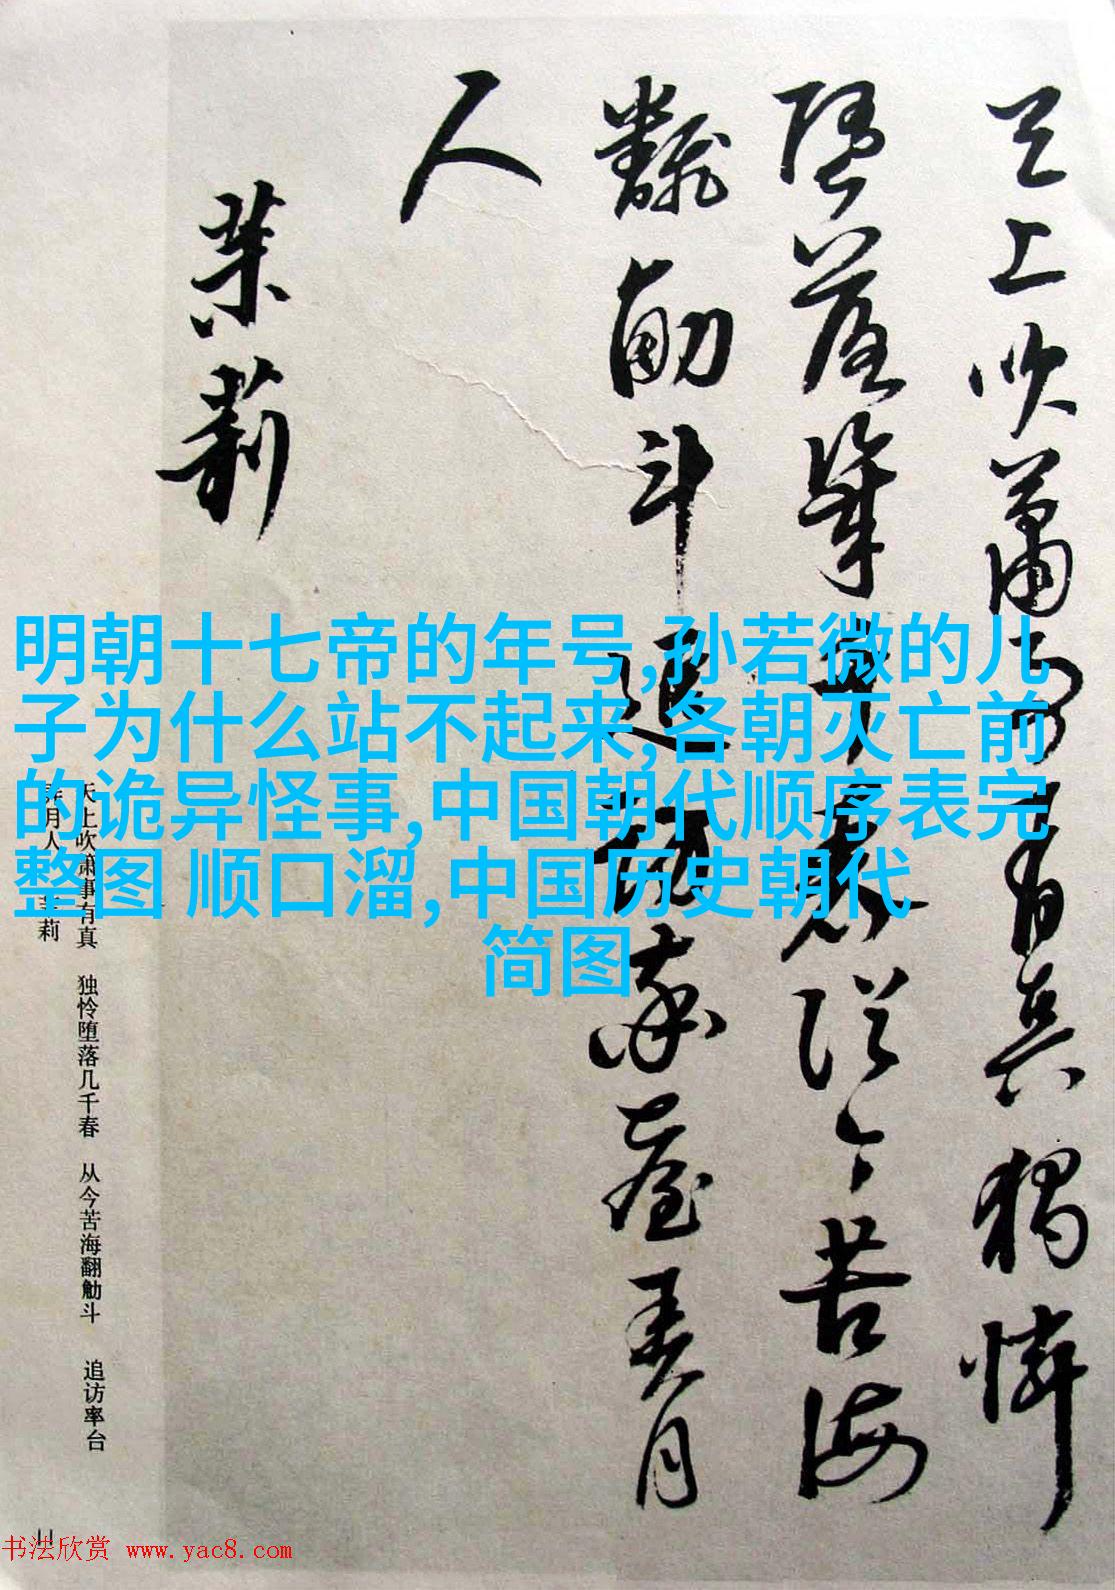 天上吹簫事有真獨憐
墮落幾千春從今苦海
翻觔斗追訪率臺弄月
人
茉莉
明朝十七帝的年号,孙若微的儿
子为什么站不起来,各朝灭亡前
的诡异怪事,中国朝代顺序表完
整图 顺口溜,中国历史朝代
简图
天上吹箫事有真 独怜堕落几千春 从今苦海翻觔斗 追访率台
弄月人 茉莉
11
书法欣赏 www.yac8.com